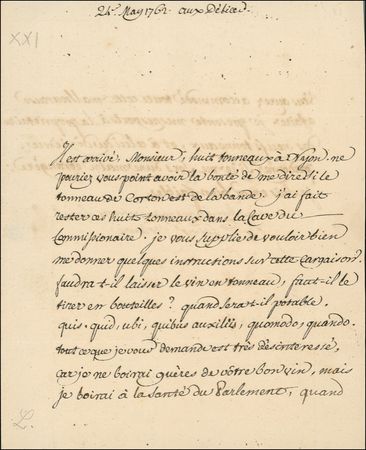 24e. May 1762. aux Délices.
XXI
Il est arivé, Monsieur, huit tonneaux à Nyon. ne
pouriez vous point avoir la bonté de me dire si le
tonneau de Corton est de la bande. j'ai fait
rester ces huit tonneaux dans la Cave du
Commissionaire. je vous supplie de vouloir bien
me donner quelques instructions sur cette cargaison.
faudra-t-il laisser le vin en tonneau, faut-il le
tirer en bouteilles? quand sera-t-il potable,
quis, quid, ubi, quibus auxiliis, quomodo, quando.
tout ce que je vous demande est très désinteressé,
car je ne boirai guères de vôtre bon vin, mais
je boirai à la santé du Parlement, quand
L.